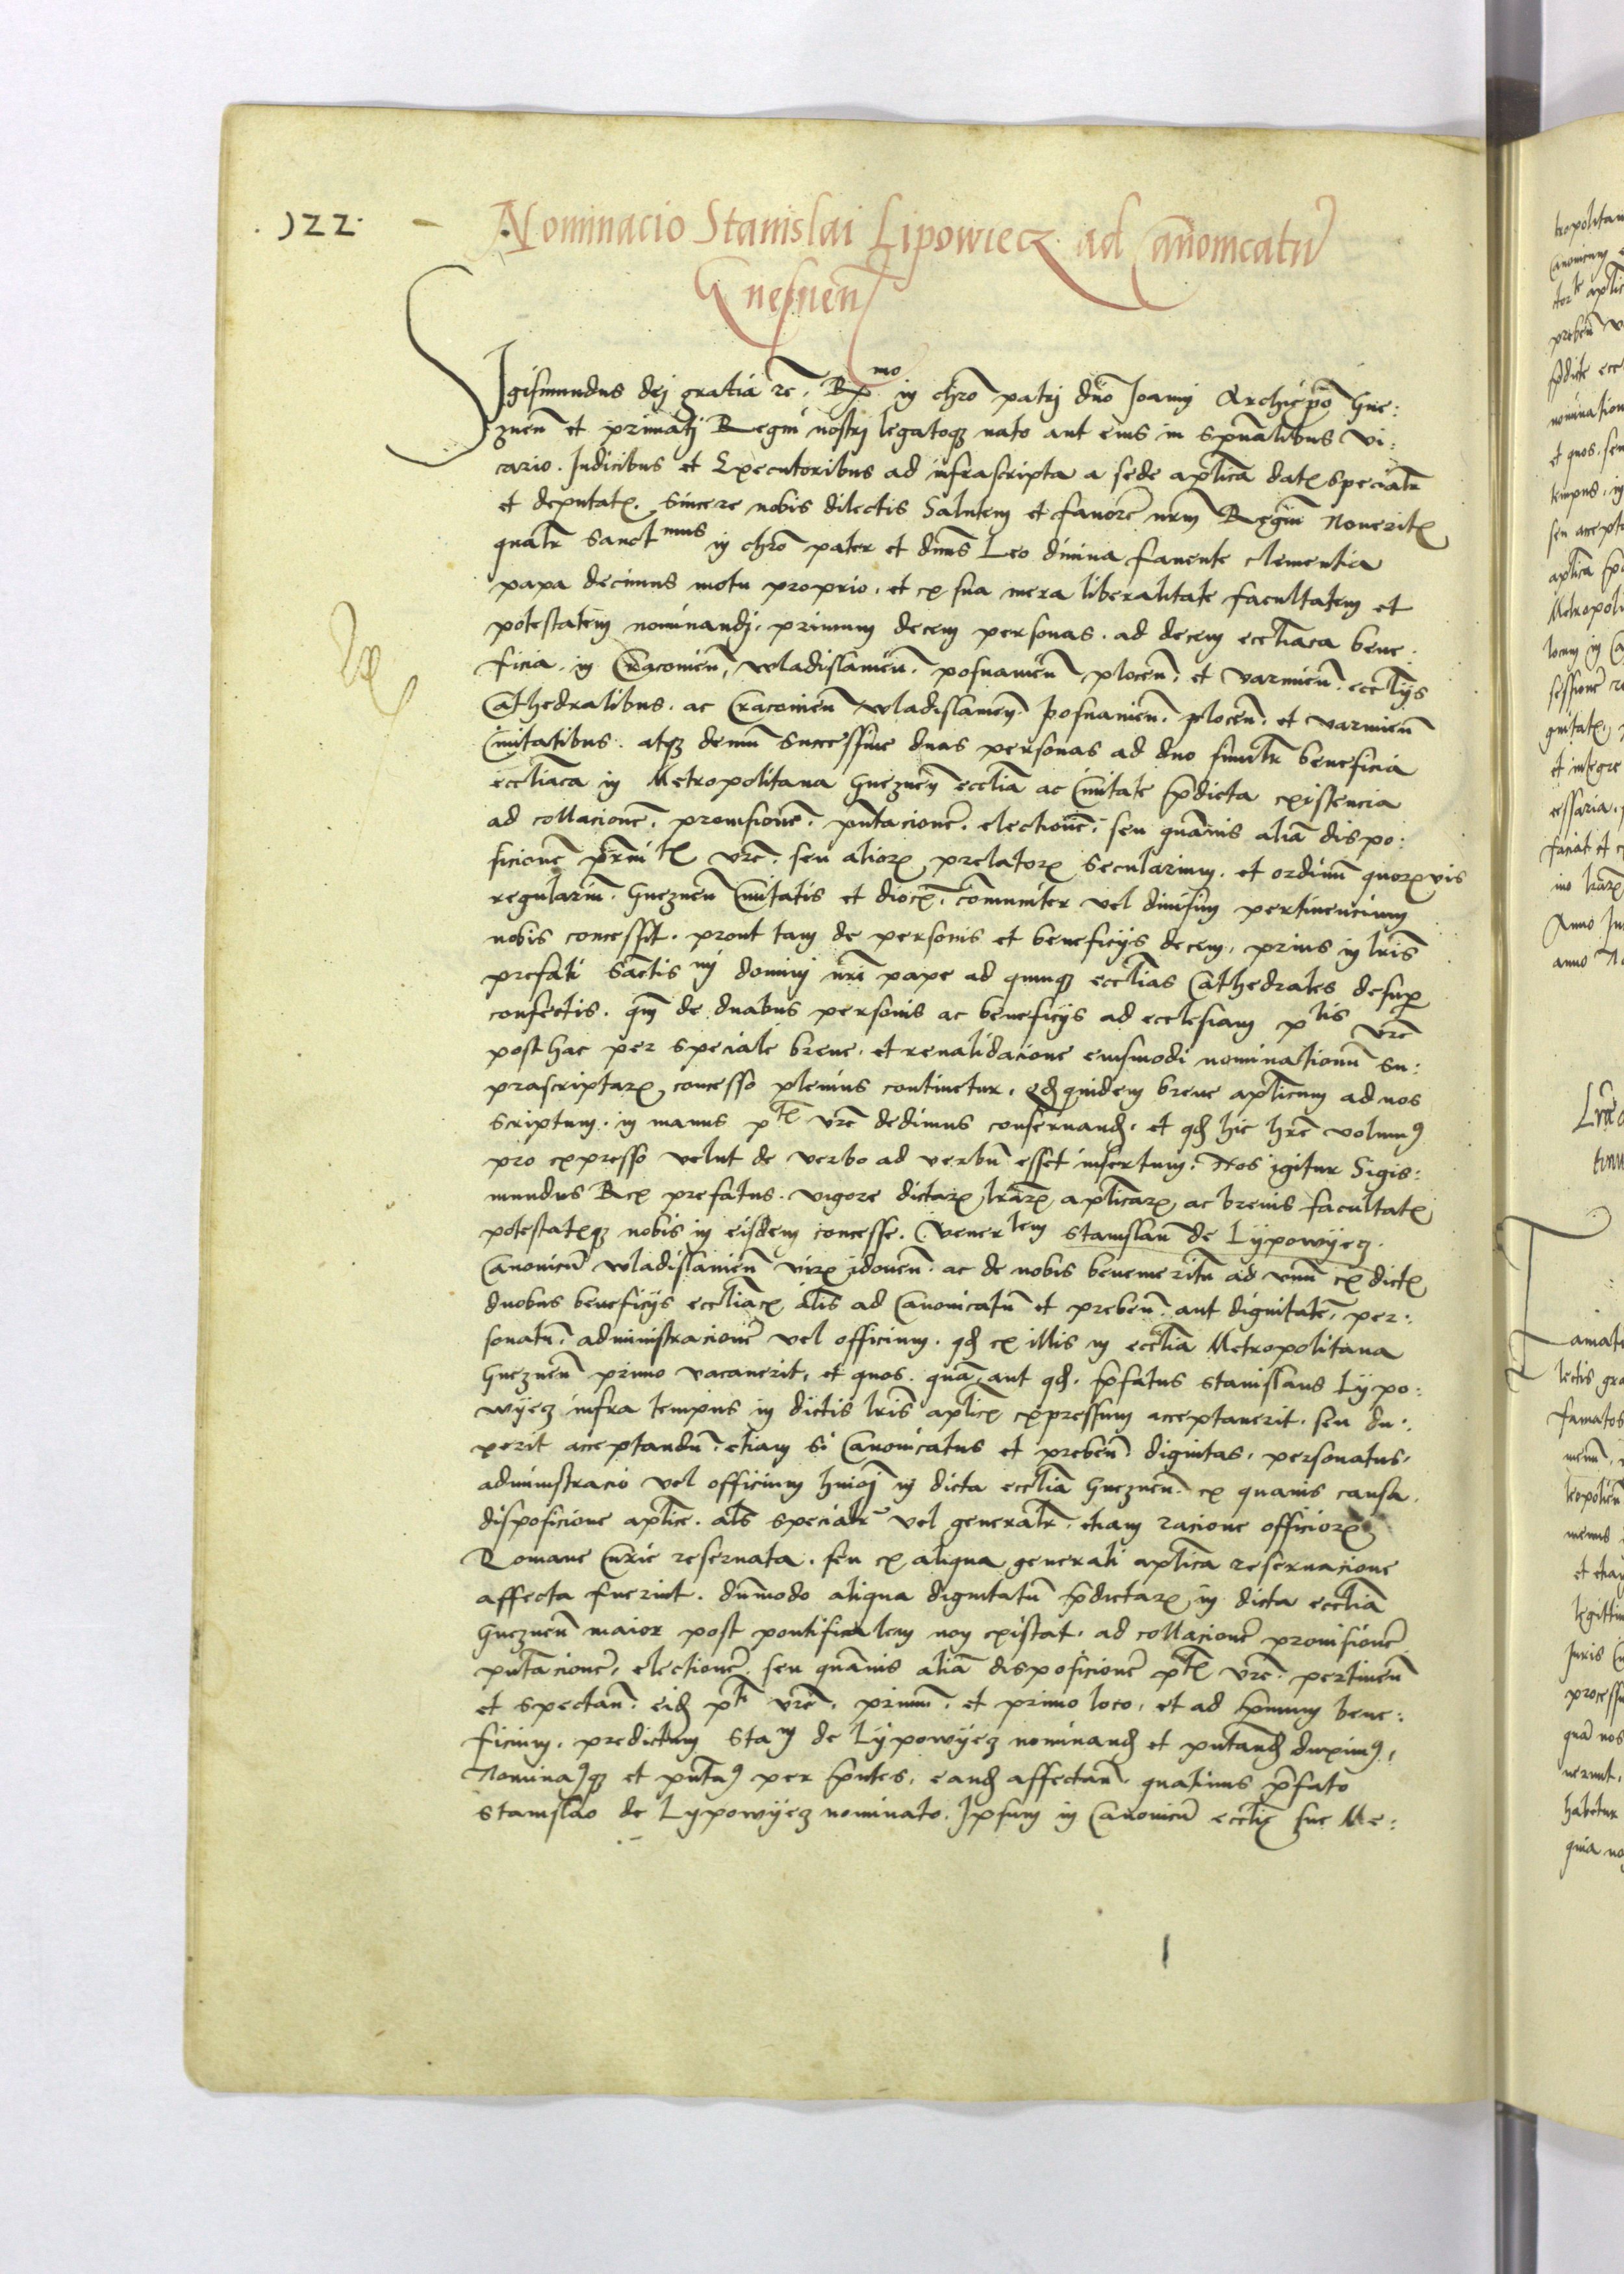 .122.
Nominacio Stanislai Lipowiecz ad Canonicatū
Gnesnen̄
Sigismundus dej gratia rc̄. Rmo in chrō patrj dn̄o Joanni Archiep̄o Gne:
znen̄ et primatj Regni nostrj legatoqꝫ nato aut eius in sp̄nalibus vi:
cario. Judicibus et Executoribus ad infrascripta a sede aplica datꝭ specialr̄
et deputatꝭ. sincere nobis dilectis Salutem et favorē nr̄m Regiū Noveritꝭ
qualr̄ Sanctmus in chrō pater et dn̄us Leo divina favente clementia
papa decimus motu proprio. et ex sua mera liberalitate facultatem et
potestatem nominandj. primum decem personas. ad decem eccliaca bene:
ficia. in Cracovien̄, wladislavien̄. posnavien̄ plocen̄. et varmien̄. eccliis
Cathedralibus. ac Cracovien̄ wladislavien̄. posnanien̄. plocen̄. et varmien̄
Civitatibus. atqꝫ demū successive duas personas ad duo similr̄ beneficia
eccliaca in Metropolitana Gneznen̄ ecclīa ac Civitate p̄dicta existencia
ad collacionē. provisionē. pn̄tacionē. electionē. seu quāvis aliā dispo:
sicionē prn̄itꝭ vrē. seu alioꝝ prelatoꝝ secularium. et ordinū quoꝝvis
regulariū. Gneznen̄ Civitatis et dioc̄. cōmuniter vel divisim pertinencium
nobis concessit. prout tam de personis et beneficijs decem, prius in lr̄is
prefati Sāctismj dominj nr̄i pape ad quinqꝫ ecclīas Cathedrales desuper
confectis. qm̄ de duabus personis ac beneficijs ad ecclesiam ptis vrē
post hac per speciale breve. et revalidacione eiusmodi nominationū su:
prascriptaꝝ concesso plenius continetur. qd̄ quidem breve aplicum ad nos
scriptum. in manus ptꝭ vrē dedimus conservand̄. et qd̄ hic hr̄e volumꝰ
pro expresso velut de verbo ad verbū esset insertum. Nos igitur Sigis:
mundus Rex prefatus. vigore dictaꝝ lr̄aꝝ aplicaꝝ, ac brevis facultatꝭ
potestatꝭqꝫ nobis in eisdem concesse. Venerlem stanislaū de Lypowyecz.
Canonicū wladislavien̄ virꝝ idoneū. ac de nobis benemeritū ad unū ex dictꝭ
duobus beneficijs eccliac̄, als̄ ad Canonicatū et preben̄. aut dignitatē, per:
sonatū. administracionē vel officium. qd̄ ex illis in ecclīa Metropolitana
Gneznen̄ primo vacaverit, et quos. quā, aut qd̄. p̄fatus stanislaus Lypo:
wyecz infra tempus in dictis lr̄is aplic̄ expressum acceptaverit. seu du:
xerit acceptandū. etiam si Canonicatus et preben̄. dignitas, personatus,
administracio vel officium hmōj in dicta ecclīa Gneznen̄. ex quavis causa.
disposicione aplice. als̄ specialr̄ vel generalr̄. etiam racione officioꝝ
Romane Curie reservata. seu ex aliqua generali aplica reservacione
affecta fuerint. dūmodo aliqua dignitatū p̄dictaꝝ in dicta ecclīa
Gneznen̄ maior post pontificalem non existat. ad collacionē provisionē
pn̄tacionē, electionē. seu quāvis aliā disposicionē ptꝭ vrē. pertinen̄
et spectan̄. eid̄ pti vrē. primū. et primo loco. et ad primum bene:
ficium. predictum Stam de Lypowyecz nominand̄ et pn̄tand̄ duximꝰ,
Nominaꝰqꝫ et pn̄taꝰ per p̄ntes, eand̄ affectan̄. quatinus p̄fato
stanislao de Lypowyecz nominato. Ipsum in Canonicū ecclīe sue Me: